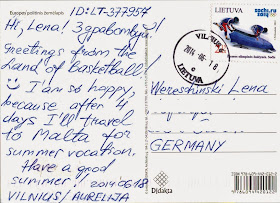 Europos politinis žemėlapis
ID:LT-377957
Hi, Lena! Здравствуй!
Greetings from the
Land of basketball!
I am so happy,
because after 4
days I'll travel
to Malta for
summer vocation.
Have a good
summer! 2014 06 18
VILNIUS/AURELIJA
LIETUVA
sochi.ru
2014
VILNIUS
2014 -06- 18
LIETUVA
Wereschinski Lena
GERMANY
Didakta